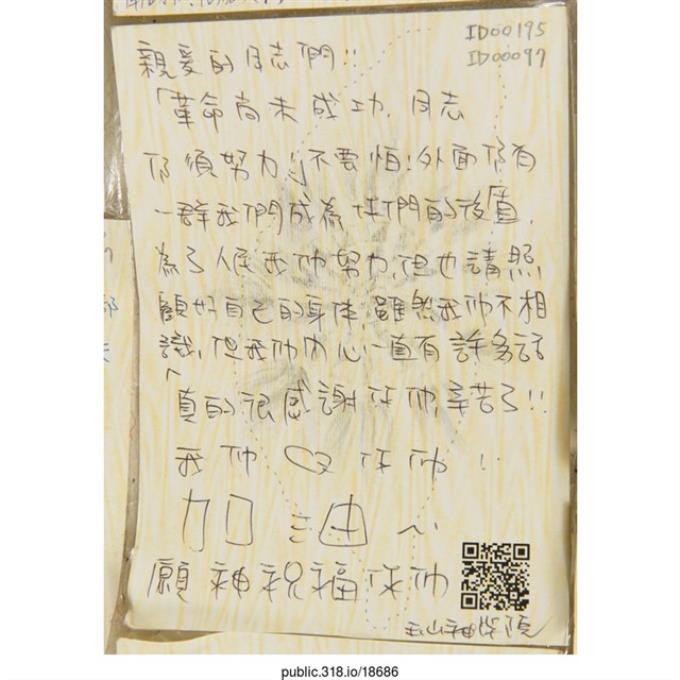 ID00195
ID00097
親愛的同志們!!
「革命尚未成功,同志
仍須努力」不要怕!外面仍有
一群我們成為你們的後盾,
為了人民我們努力,但也請照
顧好自己的身体,雖然我們不相
識,但我們內心一直有許多話
真的很感謝你們,辛苦了!!
我們♡你們!!
加油~
願神祝福你們
玉山神學院
public.318.io/18686